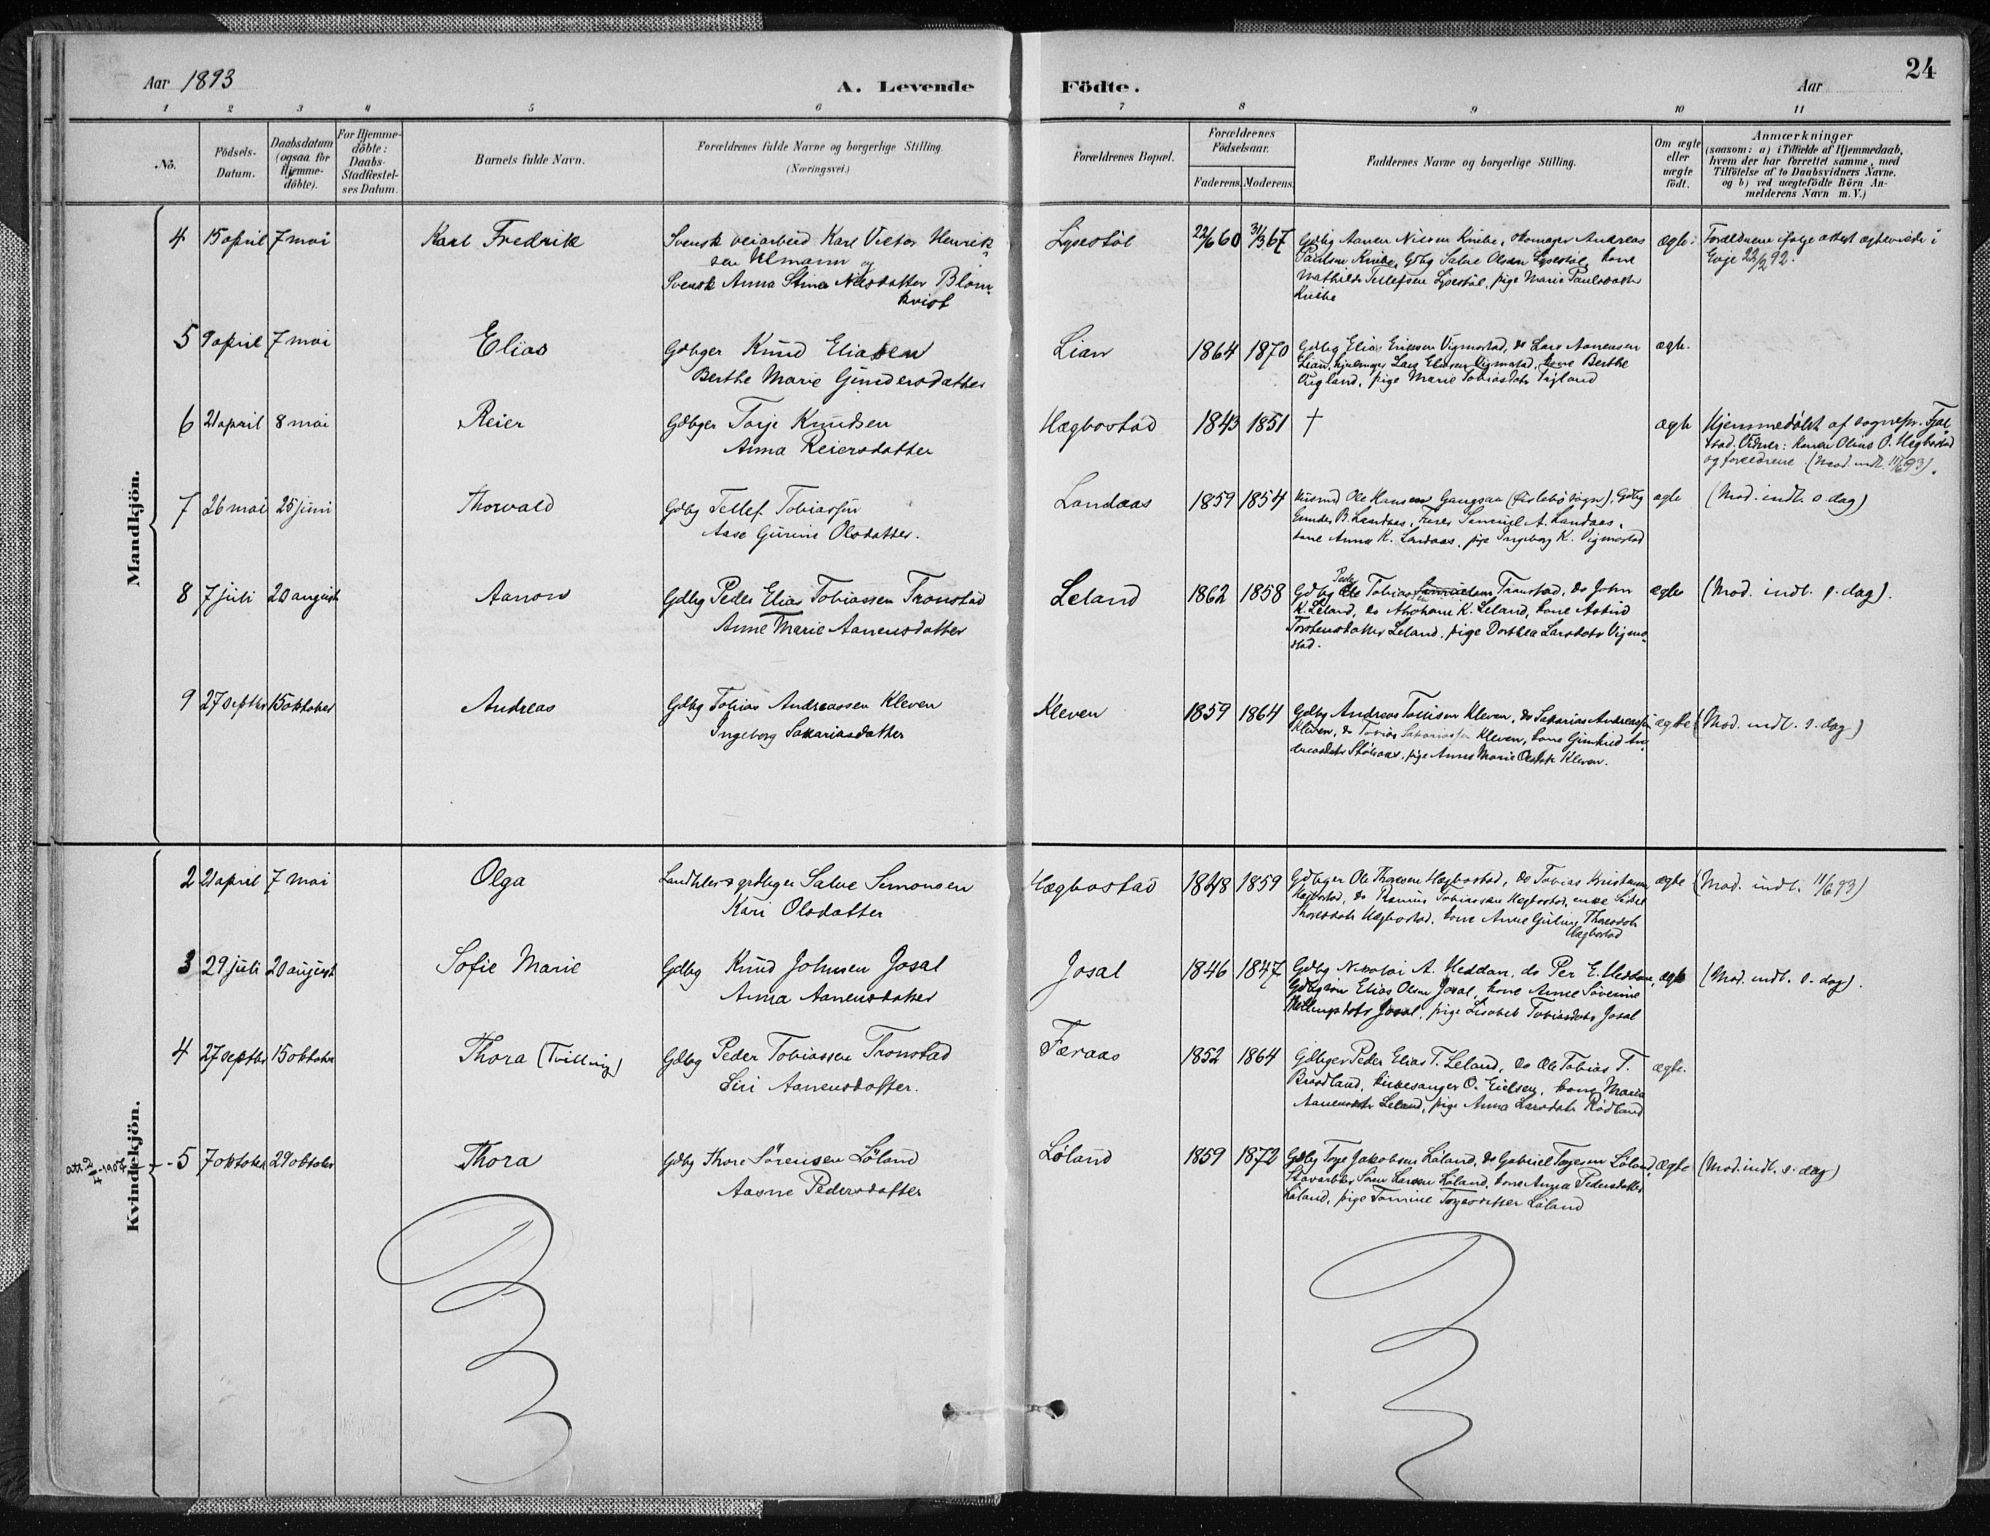 Aar 1893
A. Levende
Födte.
Aar
24
1 2 3 4 5 6 7 8 9 10 11
No.
Födsels-
Datum.
Daabsdatum
(ogsaa for
Hjemme-
döbte).
For Hjemme-
döbte:
Daabs-
Stadfæstel-
ses Datum.
Barnets fulde Navn.
Forældrenes fulde Navne og borgerlige Stilling.
(Næringsvei.)
Forældrenes Bopæl.
Forældrenes
Födselsaar.
Faderens. Moderens.
Faddernes Navne og borgerlige Stilling.
Om ægte
eller
uægte
födt.
Anmærkninger
(saasom: a) i Tilfælde af Hjemmedaab,
hvem der har forrettet samme, med
Tilföielse af to Daabsvidners Navne.
og b) ved uægtefödte Börn An-
melderens Navn m. V.)
Mandkjön.
4 15 april 7 mai Karl Fredrik Svensk veiarbeid Karl Victor Henrik-
sen Ulmann og
Svensk Anna Stina Nilsdatter Blom-
kvist
Lysestöl 22/6 60 31/3 67 Gdbg Aanen Nilsen Kvibe, skomager Andreas
Paulsen Kvibe, Gdbg Salve Olsen Lysestöl, kone
Mathilde Tellefsen Lysestöl, pige Marie Paulsdatter
Kvibe
ægte. Forældrene ifølge attest ægteviede i
Evje
5 9 april 7 mai Elias Gdbger Knud Eliasen
Berthe Marie Gundersdatter
Lian 1864 1870 Gdbg Elias Eriksen Vigmostad, do Lars Aanensen
Lian, Lars Eliasen Vigmostad, kone Berthe
pige Marie Tobiasdatr
ægte.
6 21 april 8 mai Reier Gdbger Torje Knudsen
Anna Reiersdatter
Hægbostad 1843 1851 †
ægte Hjemmedøbt af sognepr. Fjel
stad. Vidner: konen Olena O. Hægbostad
og forældrene (Mod. indl. 11/6 93).
7 26 mai 25 juni Thorvald Gdbg Tellef Tobiassen
Aase Gurine Olsdatter.
Landaas 1859 1854 Husmd Ole Hansen Gangsaa (Øislebö sogn), Gdbg
Gunder B. Landaas, Samuel A. Landaas,
kone Anna K. Landaas, pige Ingeborg K. Vigmostad
ægte (Mod. indl. s. dag)
8 7 juli 20 august Aanon Gdbg Peder Elias Tobiassen Tronstad
Anne Marie Aanensdatter
Leland 1862 1858 Gdbg Ole Tobiassen Tronstad, do John
K. Leland, do Abraham K. Leland, kone Astrid
Torstensdatter Leland, pige Dorthea Larsdatr Vigmo-
stad.
ægte (Mod. indl. s. dag).
9 27 septbr 15 oktober Andreas Gdbg Tobias Andreassen Kleven
Ingeborg Sakariasdatter
Kleven 1859 1864 Gdbg Andreas Tollisen Kleven, do Sakarias Andreassen
Kleven, do Tobias Sakariassen Kleven, kone An-
dreasdatr pige Anne Marie Olsdatr Kleven.
ægte (Mod. indl. s. dag)
Kvindekjön.
2 21 april 7 mai Olga Landhdler & grdbger Salve Simonsen
Kari Olsdatter
Hægbostad 1848 1859 Gdbger Ole Thoresen Hægbostad, do Tobias Kristiansen
Hægbostad, do Tobiassen Hægbostad, enke Sidsel
Thoresdatr Hægbostad, kone Anne Thoresdatr
Hægbostad
ægte (Mod. indl. 11/6 93)
3 29 juli 20 august Sofie Marie Gdbg Knud Johnsen Josal
Anna Aanensdatter
Josal 1846 1847 Gdbg Nikolai A. Heddan, do Per E. Heddan,
Gdbgsön Elias Olsen Josal, kone Anne Severine
Josal, pige Lisabet Tobiasdatr Josal
ægte (Mod. indl. s. dag).
4 27 septbr 15 oktober Thora (Tvilling) Gdbg Peder Tobiassen Tronstad
Siri Aanensdatter.
Færaas 1852 1864 Gdbger Peder Elias T. Leland, do Ole Tobias T.
Brådland, kirkesanger O. Eielsen, kone Maria
Aanensdatr Leland, pige Anna Larsdatr Rödland
ægte.
att. 2/4 -1907 - 5 7 oktober 29 oktober Thora Gdbg Thore Sörensen Löland
Aasne Pedersdatter
Löland 1859 1872 Gdbg Torje Jakobsen Löland, do Gabriel Torjesen Löland,
Sören Larsen Löland, kone Anna Pedersdatter
Löland, pige Tomine Torjesdatter Löland
ægte (Mod. indl. s. dag)